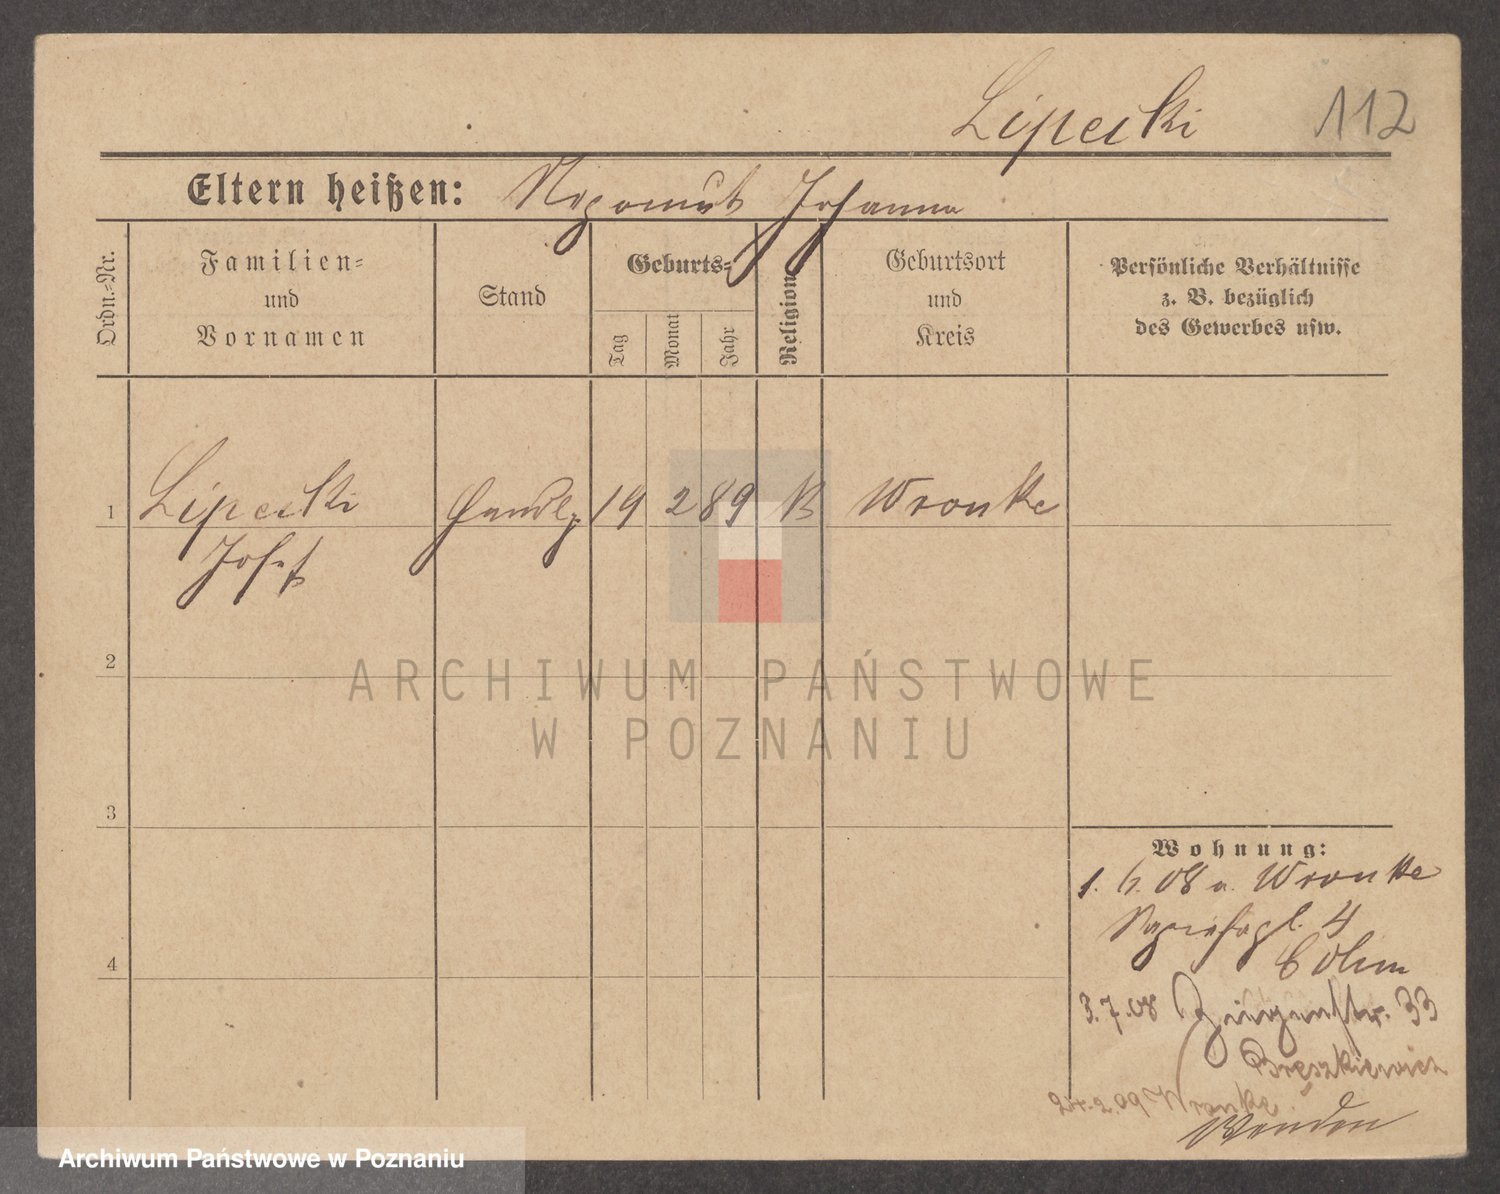 Lipecki 112
Eltern heißen: Nepomuk Johanna
Ordn.-Nr.
Familien-
und
Vornamen
Stand
Geburts-
Tag
Monat
Jahr
Religion
Geburtsort
und
Kreis
Persönliche Verhältnisse
z. B. bezüglich
des Gewerbes usw.
1 Lipecki 19 2 89 K Wronke
Josef
2
ARCHIWUM PAŃSTWOWE
W POZNANIU
3
Wohnung:
1. 6. 08 a. Wronke
4
3.7.08 33
4
24.2.09 Wronke
Archiwum Państwowe w Poznaniu